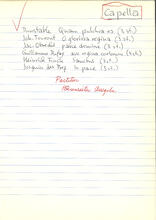 Capella
Dunstable Quam pulchra es (3 st.)
Joh. Touront O gloriosa regina (3 st.)
Jac. Obrecht parce domine (3 st.)
Guillaume Dufay ave regina coelorum (4 st.)
Heinrich Finck (3 st.)
Josquin des Prez In pace (3 st.)
Partitur